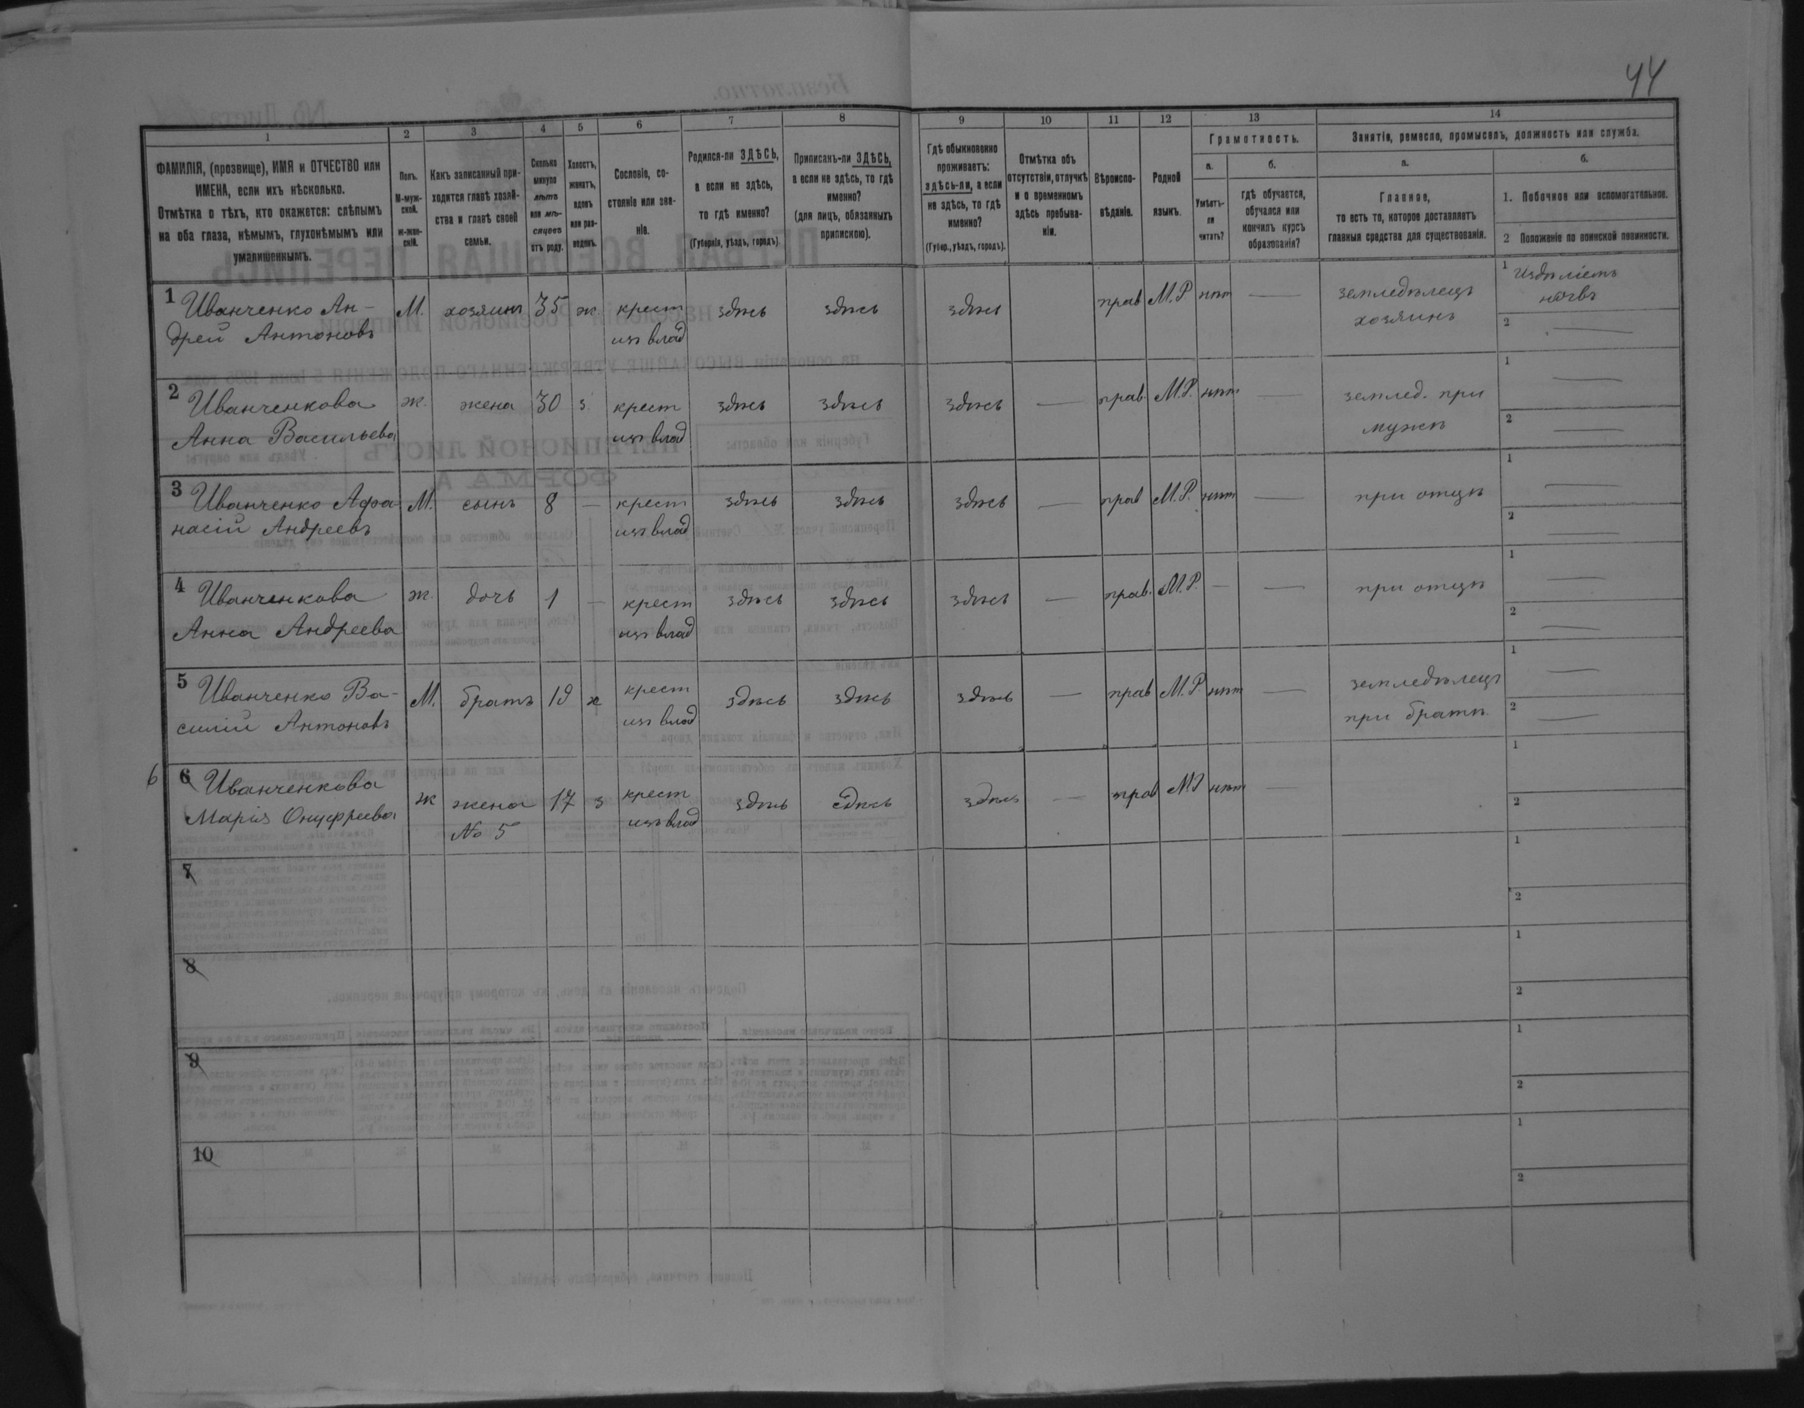 44
1 2 3 4 5 6 7 8 9 10 11 12 13 14
ФАМИЛІЯ, (прозвище), ИМЯ и ОТЧЕСТВО или ИМЕНА, если ихъ нѣсколько.
Отмѣтка о тѣхъ, кто окажется: слѣпымъ на оба глаза, нѣмымъ, глухонѣмымъ или умалишеннымъ.
Полъ. М-мужской. ж-женскій.
Какъ записанный приходится главѣ хозяйства и главѣ своей семьи.
Сколько минуло лѣтъ или мѣсяцевъ отъ роду.
Холостъ, женатъ, вдовъ или разведенъ.
Сословіе, состояніе или званіе.
Родился-ли ЗДѢСЬ, а если не здѣсь, то гдѣ именно?
(Губернія, уѣздъ, городъ).
Приписанъ-ли ЗДѢСЬ, а если не здѣсь, то гдѣ именно?
(для лицъ, обязанныхъ припискою).
Гдѣ обыкновенно проживаетъ: здѣсь-ли, а если не здѣсь, то гдѣ именно?
(Губер., уѣздъ, городъ).
Отмѣтка объ отсутствіи, отлучкѣ и о временномъ здѣсь пребываніи.
Вѣроисповѣданіе.
Родной языкъ.
Грамотность.
а. Умѣетъ-ли читать?
б. гдѣ обучается, обучался или кончилъ курсъ образованія?
Занятія, ремесло, промыселъ, должность или служба.
а. Главное, то есть то, которое доставляетъ главныя средства для существованія.
б.
1. Побочное или вспомогательное.
2 Положеніе по воинской повинности.
1 Иванченко Ан- М. хозяинъ 35 ж крест здѣсь здѣсь здѣсь прав М.Р нѣт — земледѣлецъ 1
дрей Антоновъ из влад хозяинъ 2 —
2 Иванченкова ж. жена 30 з. крест здѣсь здѣсь здѣсь — прав. М.Р. нѣт — землед. при 1 —
Анна Васильева из влад мужѣ 2 —
3 Иванченко Афа- М. сынъ 8 — крест здѣсь здѣсь здѣсь — прав М.Р. нѣт — при отцѣ 1 —
насій Андреевъ из влад 2 —
4 Иванченкова ж. дочь 1 — крест здѣсь здѣсь здѣсь — прав. М.Р. — — при отцѣ 1 —
Анна Андреева из влад 2 —
5 Иванченко Ва- М. братъ 19 ж крест здѣсь здѣсь здѣсь — прав М.Р нѣт — земледѣлецъ 1 —
силій Антоновъ из влад при братѣ 2 —
6 6 Иванченкова ж жена 17 з крест здѣсь здѣсь здѣсь — прав МР нѣт — 1
Марія Онуфріева № 5 изъ влад 2
7 1
2
8 1
2
9 1
2
10 1
2